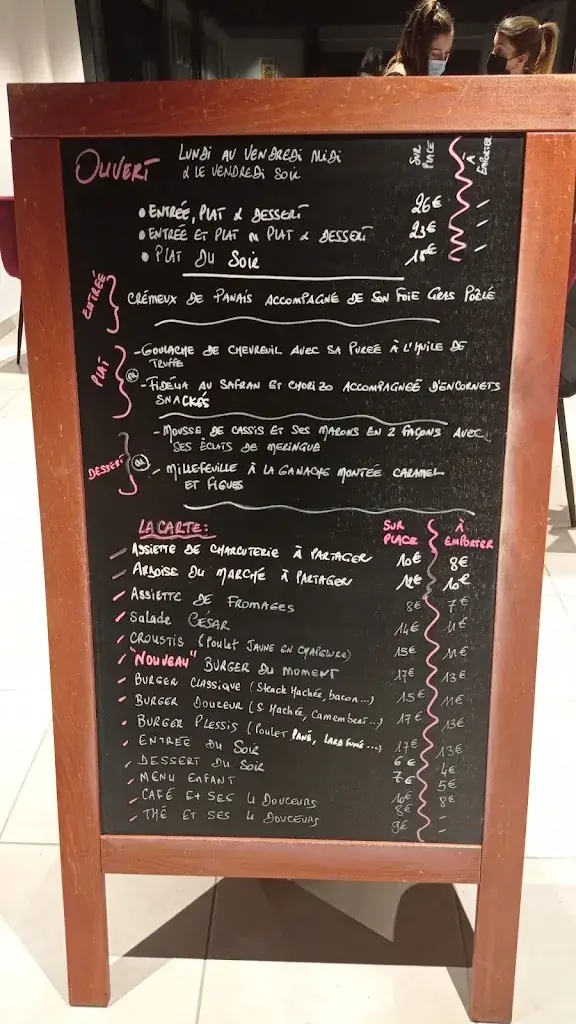 OUVERT
LUNDI AU VENDREDI MIDI
& LE VENDREDI SOIR
SUR PLACE
À EMPORTER
• ENTRÉE, PLAT & DESSERT 26€ -
• ENTRÉE ET PLAT OU PLAT & DESSERT 23€ -
• PLAT DU SOIR 18€ -
ENTRÉE
CRÉMEUX DE PANAIS ACCOMPAGNÉ DE SON FOIE GRAS POÊLÉ
PLAT
- GOULACHE DE CHEVREUIL AVEC SA PURÉE À L'HUILE DE
TRUFFE
OU
- FIDÉUA AU SAFRAN ET CHORIZO ACCOMPAGNÉE D'ENCORNETS
SNACKÉS
DESSERT
- MOUSSE DE CASSIS ET SES MARONS EN 2 FAÇONS AVEC
SES ÉCLATS DE MERINGUE
OU
- MILLEFEUILLE À LA GANACHE MONTÉE CARAMEL
ET FIGUES
LA CARTE:
SUR PLACE
À EMPORTER
ASSIETTE DE CHARCUTERIE À PARTAGER 10€ 8€
ARDOISE DU MARCHÉ À PARTAGER 10€
ASSIETTE DE FROMAGES 8€ 7€
SALADE CÉSAR 14€ 11€
CROUSTIS (POULET JAUNE EN CHAPELURE) 15€ 11€
"NOUVEAU" BURGER DU MOMENT 17€ 13€
BURGER CLASSIQUE (Steack Hachée, bacon...) 15€ 11€
BURGER DOUCEUR (S. Hachée, Camembert...) 17€ 13€
BURGER PLESSIS (POULET PANÉ, LARD FUMÉ...) 17€ 13€
ENTRÉE DU SOIR 6€ 4€
DESSERT DU SOIR 7€ 5€
MENU ENFANT 10€ 8€
CAFÉ ET SES 4 DOUCEURS 8€ -
THÉ ET SES 4 DOUCEURS 9€ -